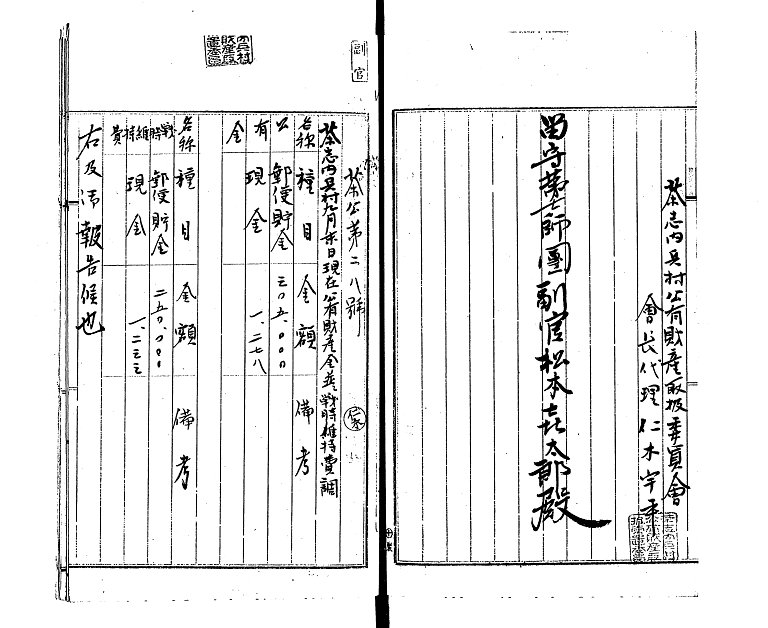 副官
茶公第二八號
茶志内兵村九月末日現在公有財産金並戰時維持費調
名称 種目 金額 備考
公有金 郵便貯金 三〇五、〇〇〇
現金 一、二七八
名称 種目 金額 備考
戰時維持費 郵便貯金 二五〇、〇〇〇
現金 一、二三三
右及御報告候也
茶志内兵村公有財産取扱委員會
會長代理 仁木宇平
留守第七師團副官松本喜太郎殿